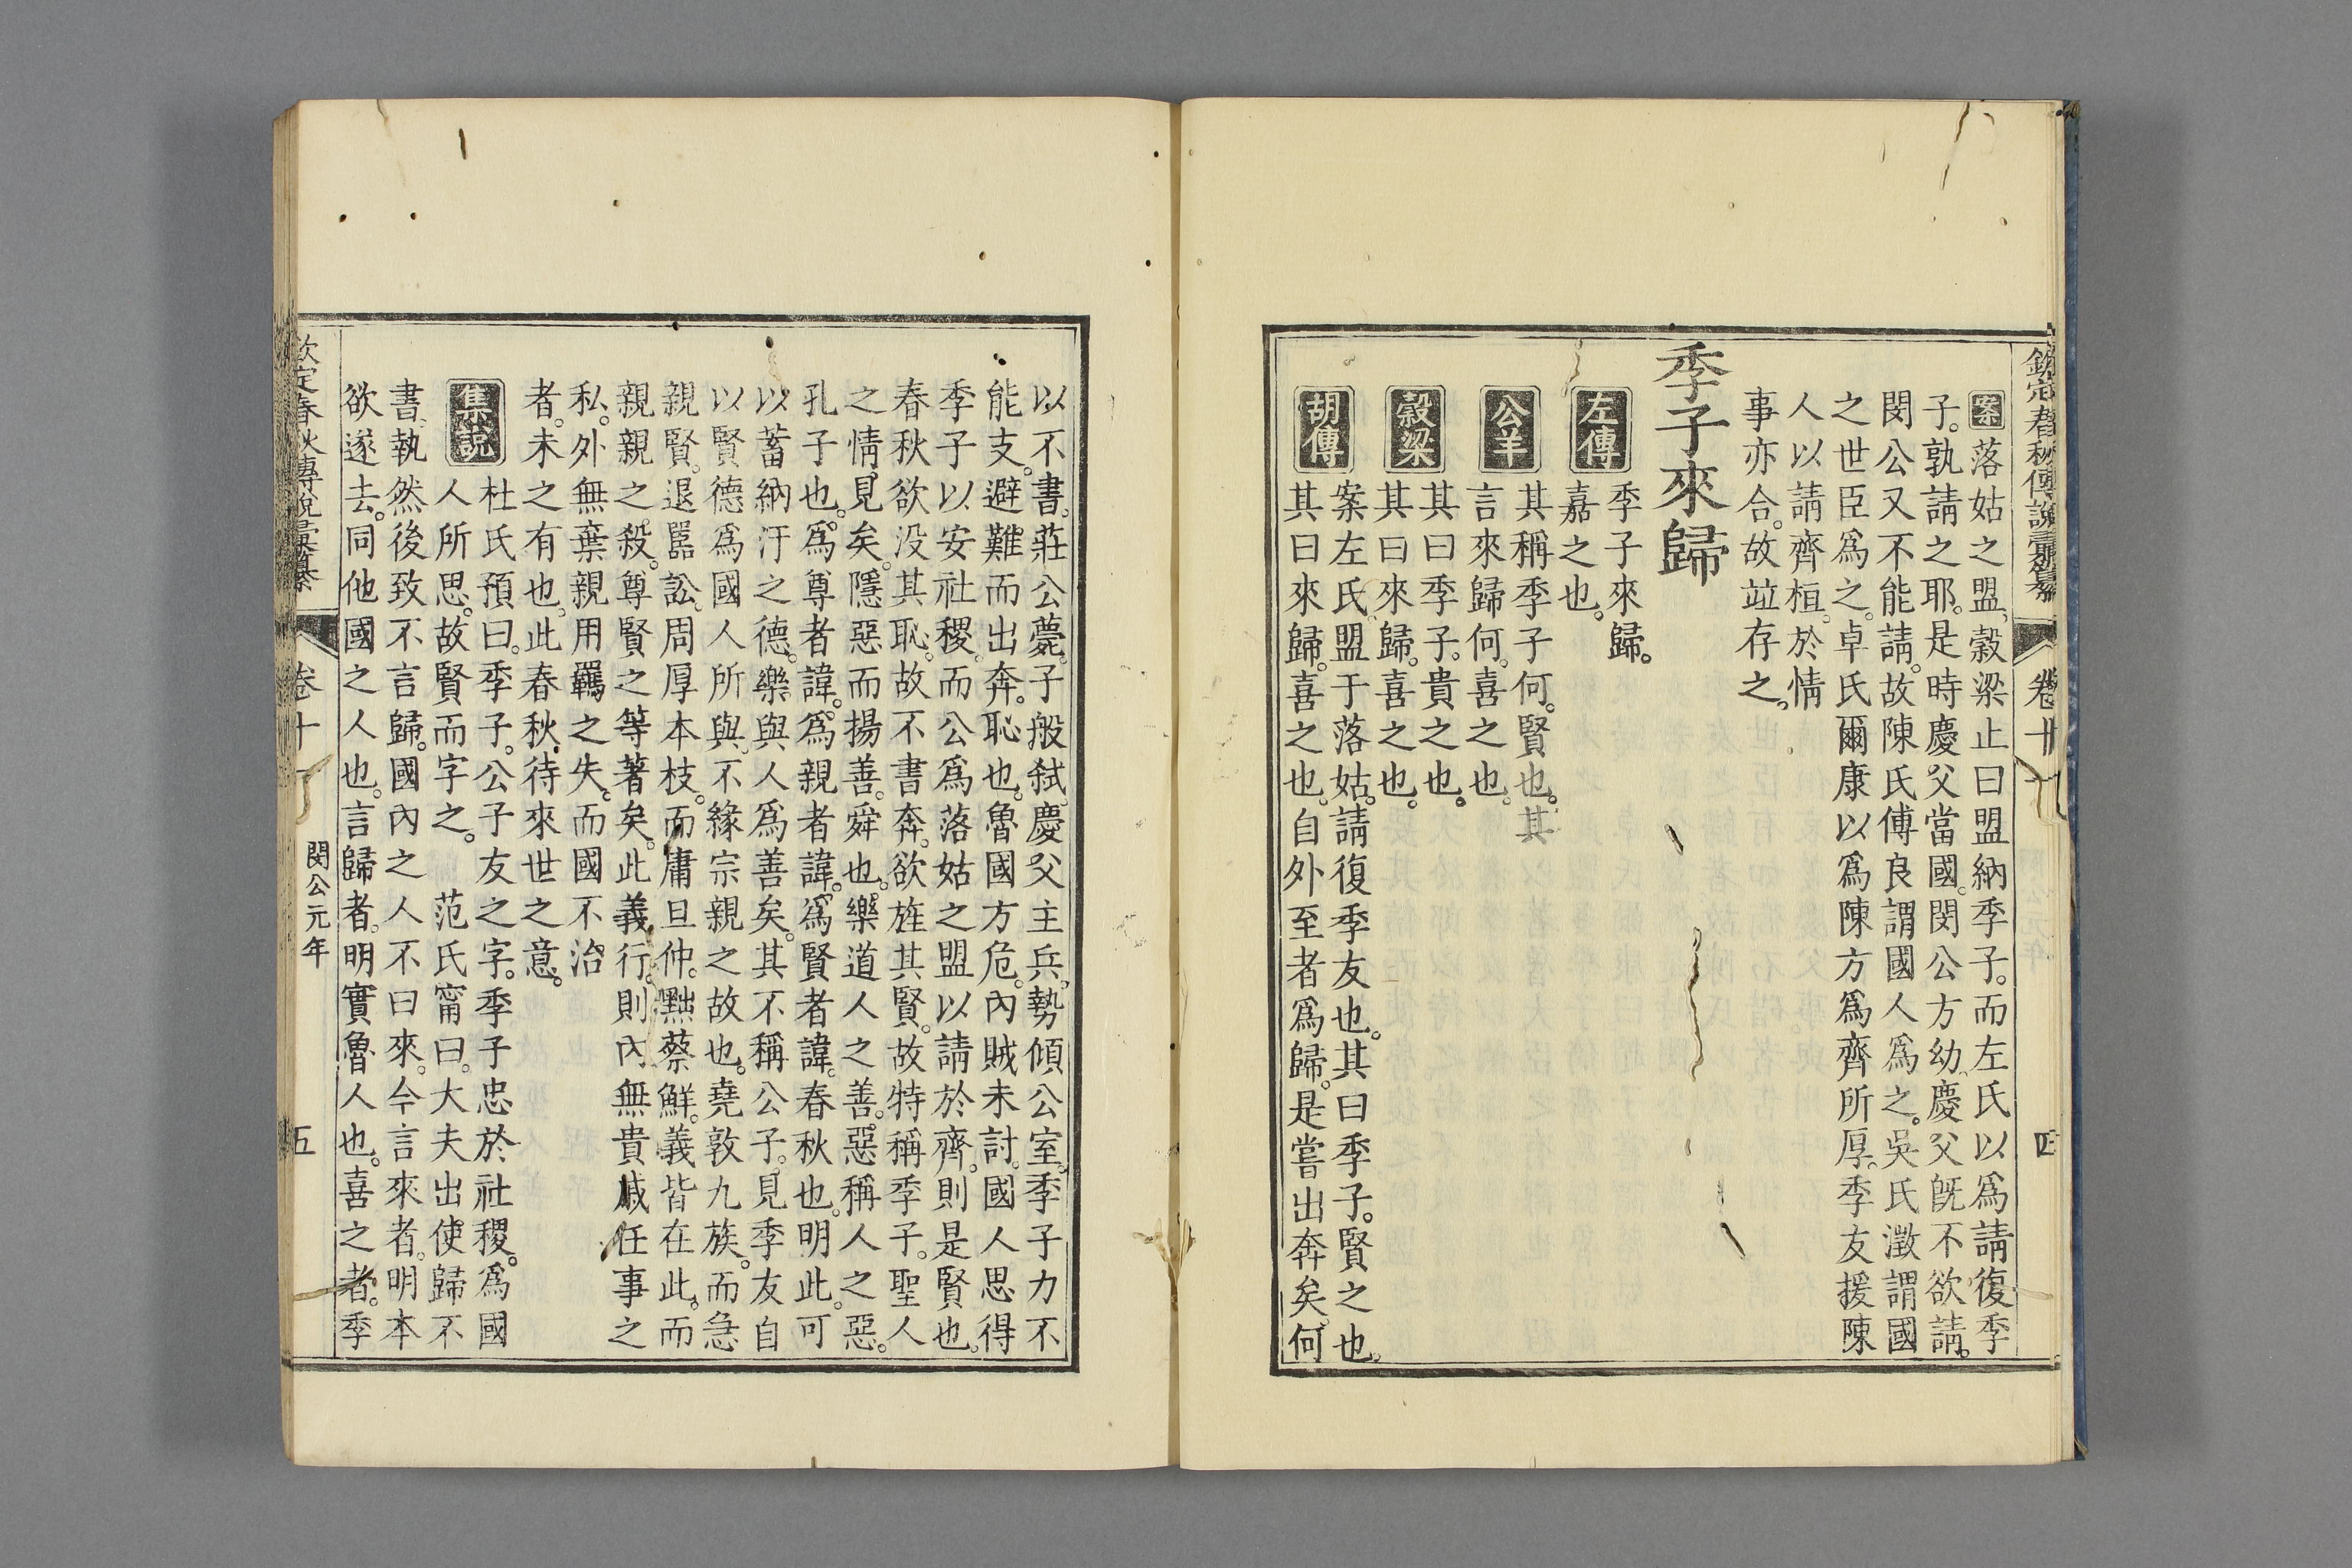 欽定春秋傳說彙纂 卷十一 四
案落姑之盟穀梁止曰盟納季子。而左氏以爲請復季
子。孰請之耶。是時慶父當國。閔公方幼、慶父旣不欲請。
閔公又不能請。故陳氏傅良謂國人爲之。吳氏澂謂國
之世臣爲之。卓氏爾康以爲陳方爲齊所厚。季友援陳
人以請齊桓。於情
事亦合。故竝存之。
季子來歸
左傳
季子來歸。
嘉之也。
公羊
其稱季子何。賢也。其
言來歸何。喜之也。
穀梁
其曰季子。貴之也。
其曰來歸。喜之也。
胡傳
案左氏盟于落姑。請復季友也。其曰季子。賢之也。
其曰來歸。喜之也。自外至者爲歸。是嘗出奔矣。何
以不書。莊公薨。子般弑。慶父主兵。勢傾公室。季子力不
能支。避難而出奔。恥也。魯國方危。內賊未討。國人思得
季子以安社稷。而公爲落姑之盟以請於齊。則是賢也。
春秋欲沒其恥。故不書奔。欲旌其賢。故特稱季子。聖人
之情見矣。隱惡而揚善。舜也。樂道人之善。惡稱人之惡。
孔子也。爲尊者諱。爲親者諱。爲賢者諱。春秋也。明此。可
以蓄納汙之德。樂與人爲善矣。其不稱公子。見季友自
以賢德爲國人所與。不緣宗親之故也。堯敦九族。而急
親賢。退嚚訟。周厚本枝。而庸旦仲。黜蔡鮮。義皆在此。而
親親之殺。尊賢之等著矣。此義行。則內無貴戚任事之
私。外無棄親用羈之失。而國不治
者。未之有也。此春秋待來世之意。
集說
杜氏預曰。季子。公子友之字。季子忠於社稷。爲國
人所思。故賢而字之。 范氏甯曰。大夫出使歸不
書。執然後致不言歸。國內之人不曰來。今言來者。明本
欲遂去。同他國之人也。言歸者。明實魯人也。喜之者。季
欽定春秋傳說彙纂 卷十一 閔公元年 五